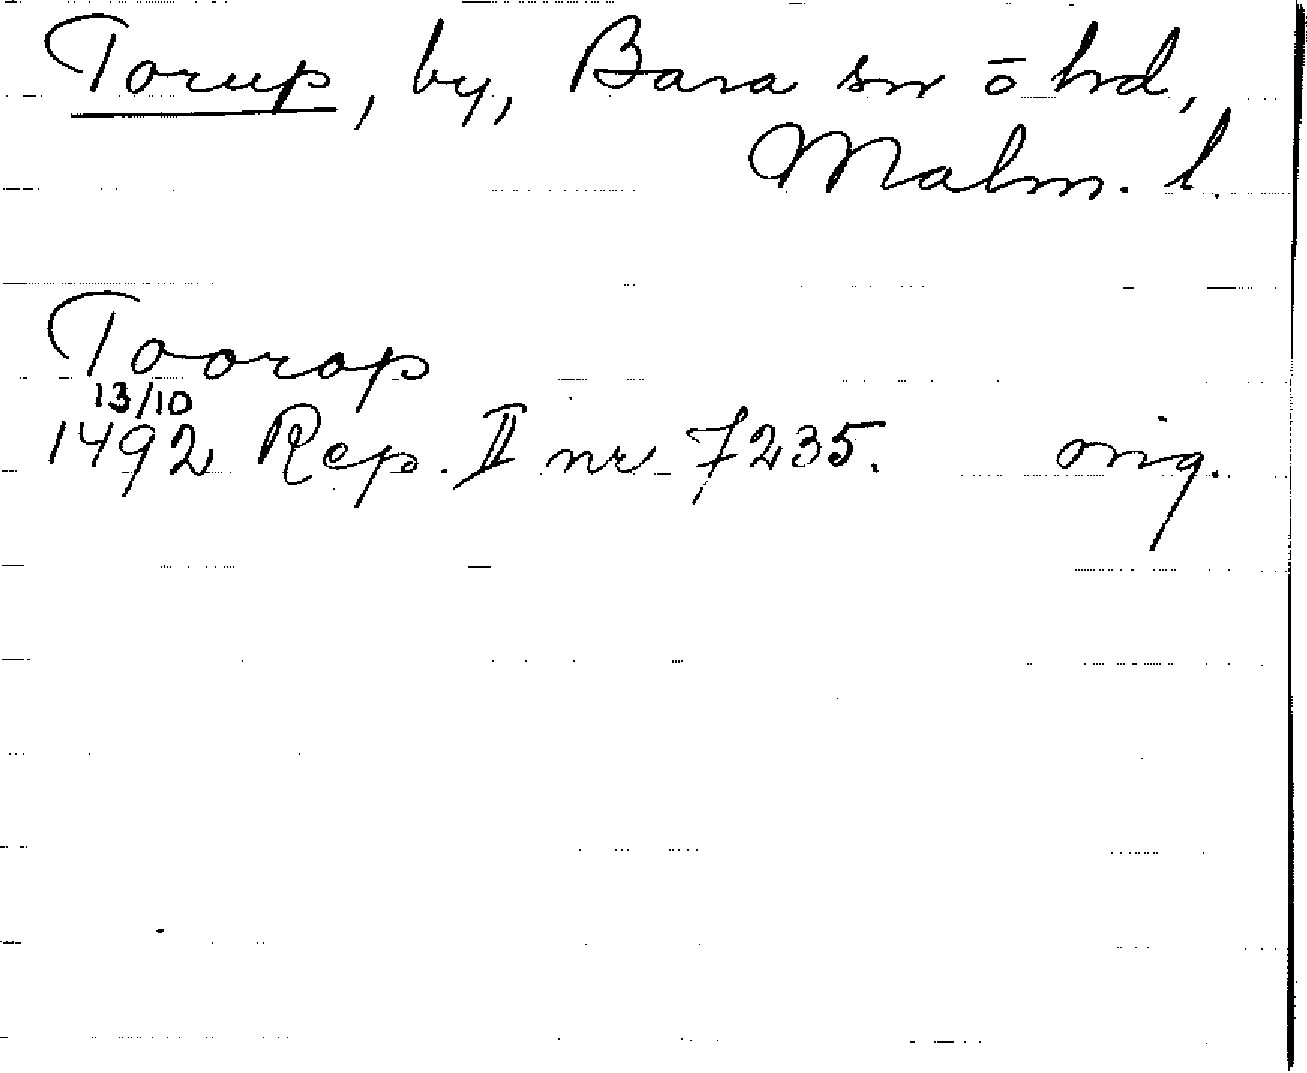 Torup, by, Bara sn ō hd,
Malm. l.
Toorop
13/10
1492 Rep. II nr 7235. orig.